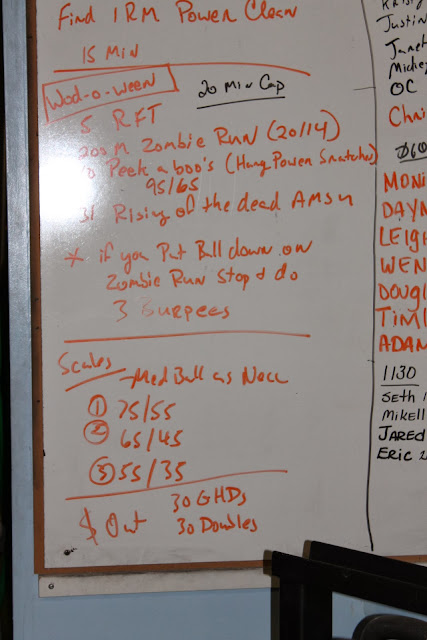 Find 1RM Power Clean
15 Min
Wod-o-ween
20 Min Cap
5 RFT
200 M Zombie Run (20/14)
Peek a boo's (Hang Power Snatches)
95/65
31 Rising of the dead AMSU
* if you Put Ball down on
Zombie Run Stop & do
3 Burpees
Scales
Med Ball as Necc
① 75/55
② 65/45
③ 55/35
$ Out
30 GHDs
30 Doubles
Justin
Janet
Mickey
OC
Chri
MONI
DAYN
LEIGH
WEN
DOUG
TIM
ADAM
1130
SETH
MIKELL
JARED
ERIC